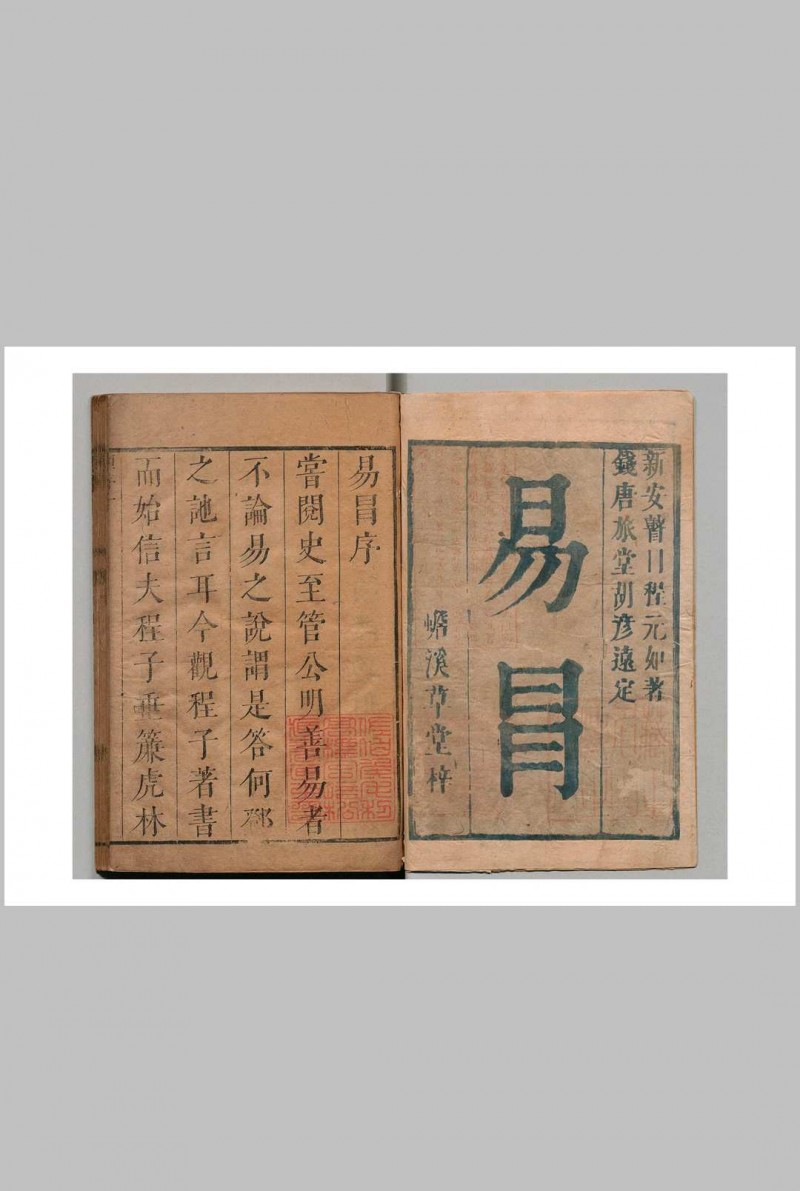 新安瞽目程元如著
錢唐旅堂胡彥遠定
易冒
嶦溪草堂梓
易冒序
嘗閱史至管公明善易者
不論易之說謂是答何鄧
之訑言耳今觀程子著書
而始信夫程子垂簾虎林